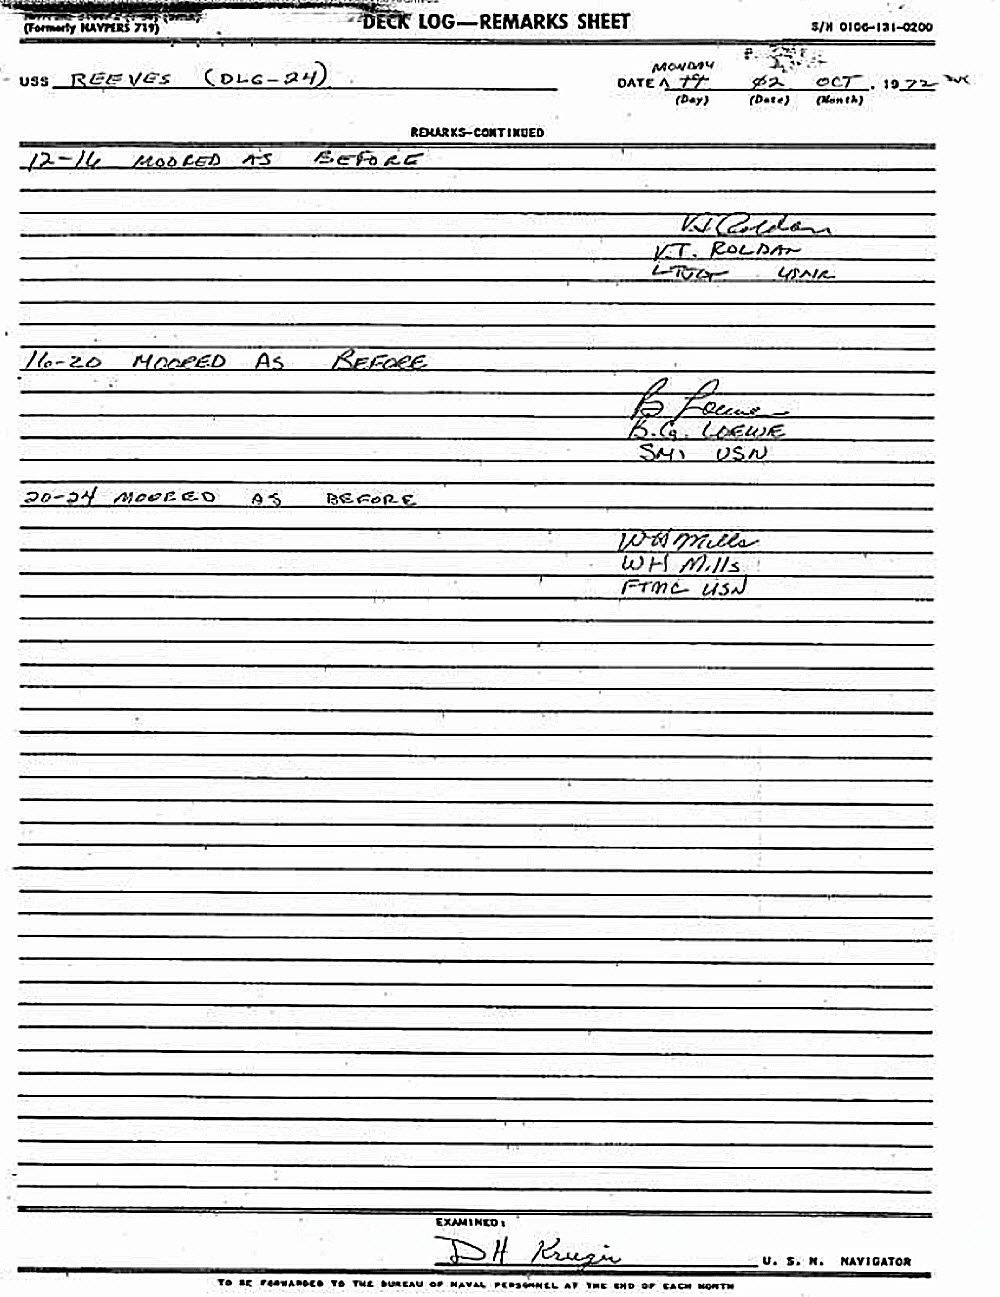 (Formerly NAVPERS 719)
DECK LOG—REMARKS SHEET
S/N 0106-131-0200
USS REEVES (DLG-24)
MONDAY
DATE 02 OCT, 1972
(Day) (Date) (Month)
REMARKS—CONTINUED
12-16 MOORED AS BEFORE
V.T. Roldan
V.T. ROLDAN
LTJG USNR
16-20 MOORED AS BEFORE
B Loewe
B.G. LOEWE
SM1 USN
20-24 MOORED AS BEFORE
WH Mills
WH Mills
FTMC USN
EXAMINED:
DH
U. S. N. NAVIGATOR
TO BE FORWARDED TO THE BUREAU OF NAVAL PERSONNEL AT THE END OF EACH MONTH